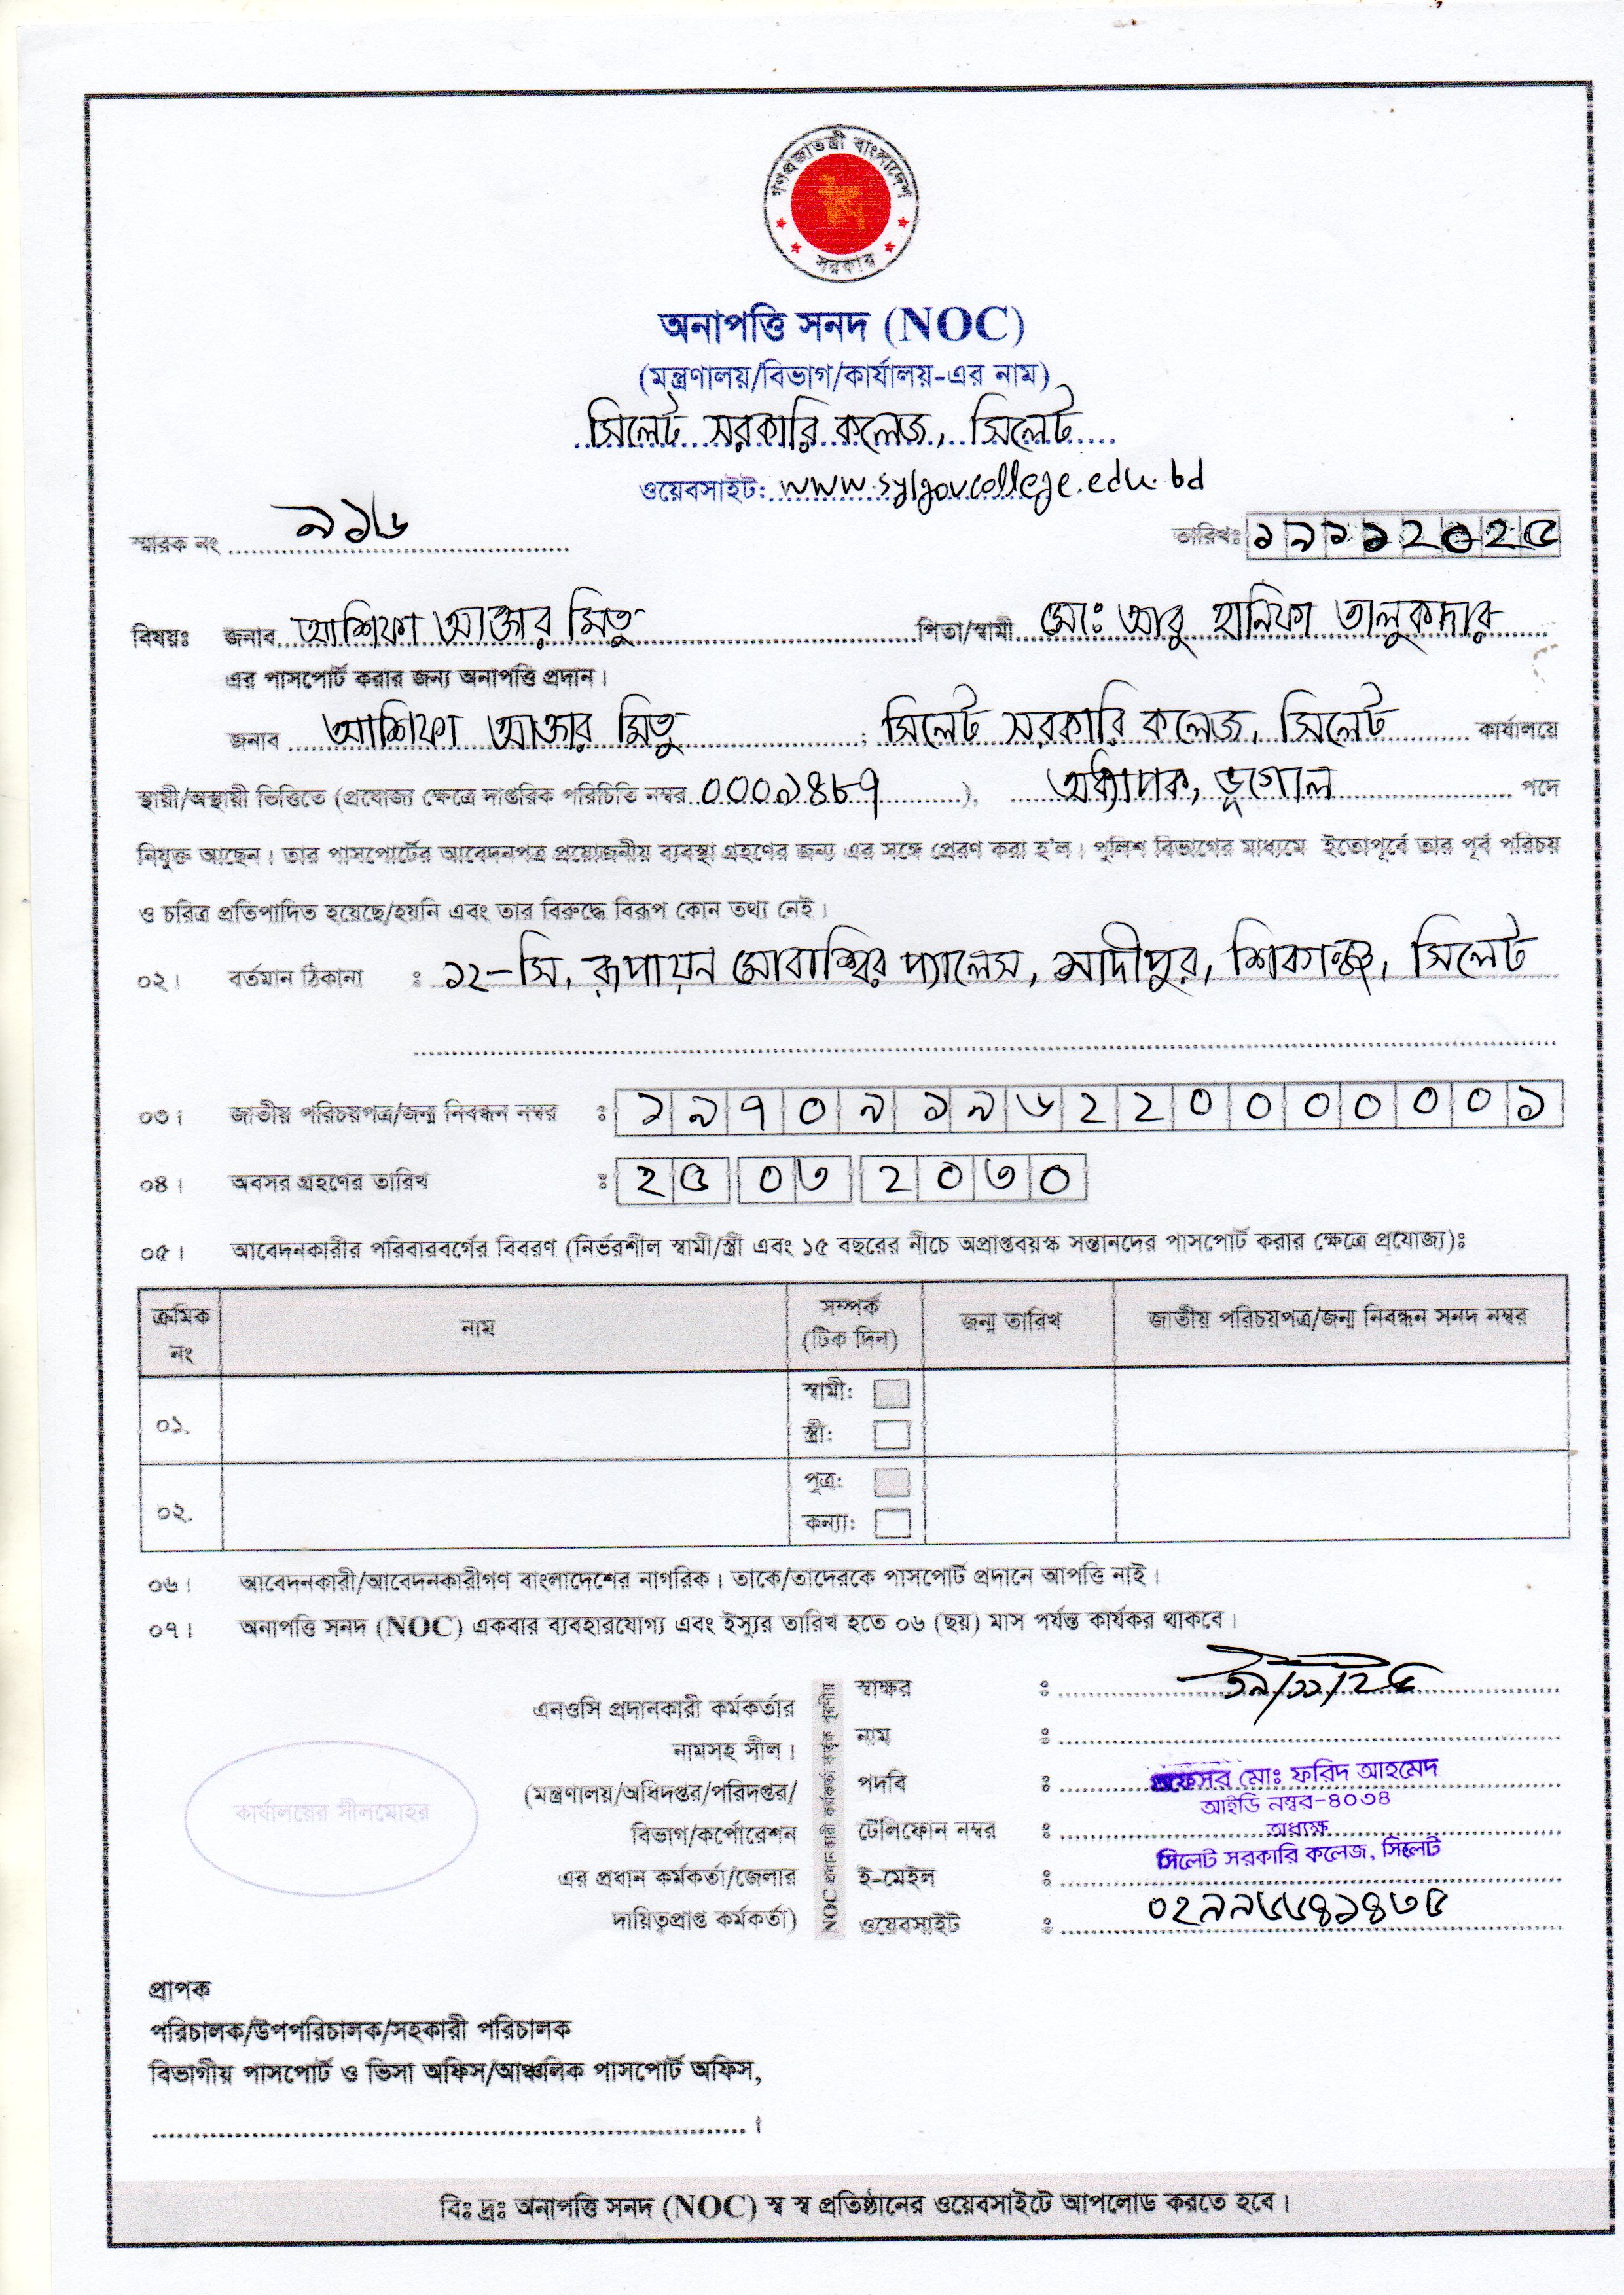 গণপ্রজাতন্ত্রী বাংলাদেশ
সরকার
অনাপত্তি সনদ (NOC)
(মন্ত্রণালয়/বিভাগ/কার্যালয়-এর নাম)
সিলেট সরকারি কলেজ, সিলেট
ওয়েবসাইট: www.sylgovcollege.edu.bd
স্মারক নং ৯১৬ তারিখঃ ১৯১১২০২৫
বিষয়ঃ জনাব আশিফা আক্তার মিতু পিতা/স্বামী মোঃ আবু হানিফা তালুকদার
এর পাসপোর্ট করার জন্য অনাপত্তি প্রদান।
জনাব আশিফা আক্তার মিতু ; সিলেট সরকারি কলেজ, সিলেট কার্যালয়ে
স্থায়ী/অস্থায়ী ভিত্তিতে (প্রযোজ্য ক্ষেত্রে দাপ্তরিক পরিচিতি নম্বর ০০০৯৪৮৭ ), অধ্যাপক, ভূগোল পদে
নিযুক্ত আছেন। তার পাসপোর্টের আবেদনপত্র প্রয়োজনীয় ব্যবস্থা গ্রহণের জন্য এর সঙ্গে প্রেরণ করা হ'ল। পুলিশ বিভাগের মাধ্যমে ইতোপূর্বে তার পূর্ব পরিচয়
ও চরিত্র প্রতিপাদিত হয়েছে/হয়নি এবং তার বিরুদ্ধে বিরূপ কোন তথ্য নেই।
০২। বর্তমান ঠিকানা : ১২-সি, রূপায়ন মোবাশ্বির প্যালেস, সাদীপুর, সিলেট
০৩। জাতীয় পরিচয়পত্র/জন্ম নিবন্ধন নম্বর : ১৯৭০৯১৯৬২২০০০০০০১
০৪। অবসর গ্রহণের তারিখ : ২৫ ০৩ ২০৩০
০৫। আবেদনকারীর পরিবারবর্গের বিবরণ (নির্ভরশীল স্বামী/স্ত্রী এবং ১৫ বছরের নীচে অপ্রাপ্তবয়স্ক সন্তানদের পাসপোর্ট করার ক্ষেত্রে প্রযোজ্য)ঃ
ক্রমিক নং নাম সম্পর্ক (টিক দিন) জন্ম তারিখ জাতীয় পরিচয়পত্র/জন্ম নিবন্ধন সনদ নম্বর
০১. স্বামী:
স্ত্রী:
০২. পুত্র:
কন্যা:
০৬। আবেদনকারী/আবেদনকারীগণ বাংলাদেশের নাগরিক। তাকে/তাদেরকে পাসপোর্ট প্রদানে আপত্তি নাই।
০৭। অনাপত্তি সনদ (NOC) একবার ব্যবহারযোগ্য এবং ইস্যুর তারিখ হতে ০৬ (ছয়) মাস পর্যন্ত কার্যকর থাকবে।
এনওসি প্রদানকারী কর্মকর্তার
নামসহ সীল।
(মন্ত্রণালয়/অধিদপ্তর/পরিদপ্তর/
বিভাগ/কর্পোরেশন
এর প্রধান কর্মকর্তা/জেলার
দায়িত্বপ্রাপ্ত কর্মকর্তা)
কার্যালয়ের সীলমোহর
NOC প্রদানকারী কর্মকর্তা কর্তৃক পূরণীয়
স্বাক্ষর : ১৯/১১/২৫
নাম :
পদবি : প্রফেসর মোঃ ফরিদ আহমেদ
আইডি নম্বর-৪০৩৪
টেলিফোন নম্বর : অধ্যক্ষ
সিলেট সরকারি কলেজ, সিলেট
ই-মেইল :
ওয়েবসাইট : ০২৯৯৬৬৪১৪৩৫
প্রাপক
পরিচালক/উপপরিচালক/সহকারী পরিচালক
বিভাগীয় পাসপোর্ট ও ভিসা অফিস/আঞ্চলিক পাসপোর্ট অফিস,
।
বিঃ দ্রঃ অনাপত্তি সনদ (NOC) স্ব স্ব প্রতিষ্ঠানের ওয়েবসাইটে আপলোড করতে হবে।